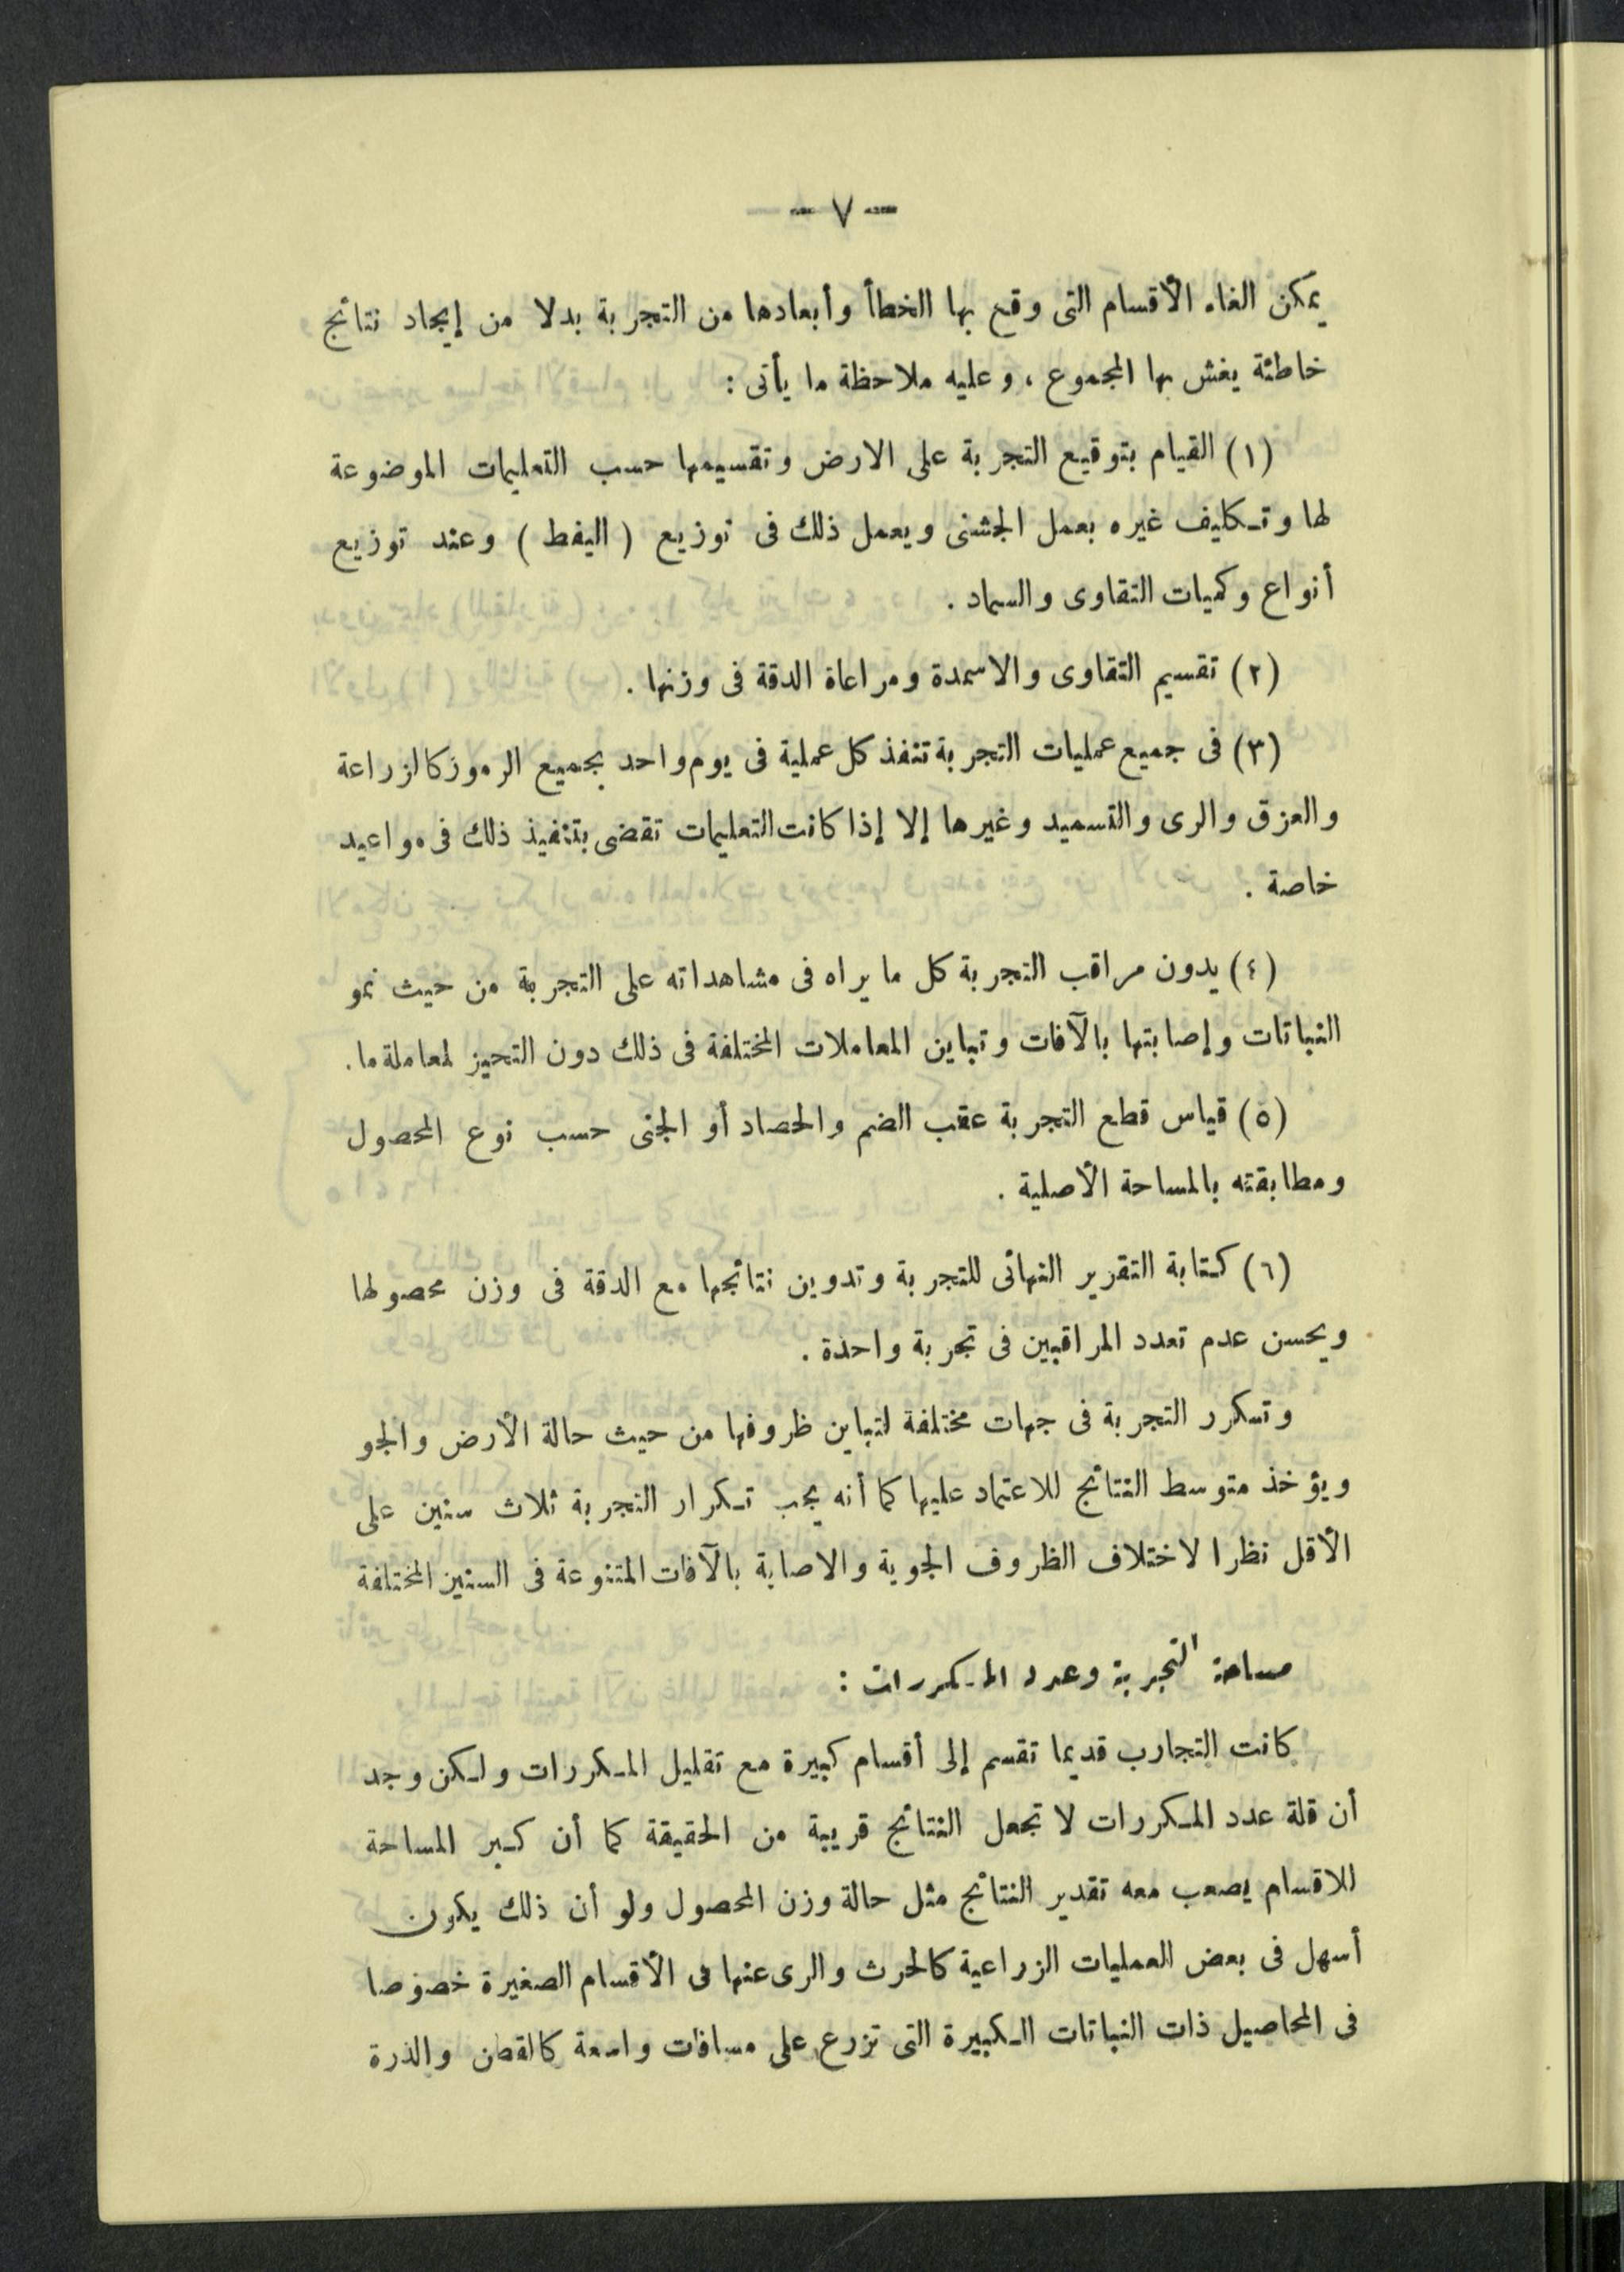 — ٧ —
يمكن الغاء الأقسام التى وقع بها الخطأ وأبعادها من التجربة بدلا من إيجاد نتائج
خاطئة يغش بها المجموع ، وعليه ملاحظة ما يأتى :
(١) القيام بتوقيع التجربة على الارض وتقسيمها حسب التعليمات الموضوعة
لها وتكليف غيره بعمل الجشنى ويعمل ذلك فى توزيع ( اليفط ) وعند توزيع
أنواع وكميات التقاوى والسماد .
(٢) تقسيم التقاوى والاسمدة ومراعاة الدقة فى وزنها .
(٣) فى جميع عمليات التجربة تنفذ كل عملية فى يوم واحد بجميع الرموز كالزراعة
والعزق والرى والتسميد وغيرها إلا إذا كانت التعليمات تقضى بتنفيذ ذلك فى مواعيد
خاصة .
(٤) يدون مراقب التجربة كل ما يراه فى مشاهداته على التجربة من حيث نمو
النباتات وإصابتها بالآفات وتباين المعاملات المختلفة فى ذلك دون التحيز لمعاملة ما .
(٥) قياس قطع التجربة عقب الضم والحصاد أو الجنى حسب نوع المحصول
ومطابقته بالمساحة الأصلية .
(٦) كتابة التقرير النهائى للتجربة وتدوين نتائجها مع الدقة فى وزن محصولها
ويحسن عدم تعدد المراقبين فى تجربة واحدة .
وتكرر التجربة فى جهات مختلفة لتباين ظروفها من حيث حالة الأرض والجو
ويؤخذ متوسط النتائج للاعتماد عليها كما أنه يجب تكرار التجربة ثلاث سنين على
الأقل نظرا لاختلاف الظروف الجوية والاصابة بالآفات المتنوعة فى السنين المختلفة
مساحة التجربة وعدد المكررات :
كانت التجارب قديما تقسم إلى أقسام كبيرة مع تقليل المكررات ولكن وجد
أن قلة عدد المكررات لا تجعل النتائج قريبة من الحقيقة كما أن كبر المساحة
للاقسام يصعب معه تقدير النتائج مثل حالة وزن المحصول ولو أن ذلك يكون
أسهل فى بعض العمليات الزراعية كالحرث والرى عنها فى الأقسام الصغيرة خصوصا
فى المحاصيل ذات النباتات الكبيرة التى تزرع على مسافات واسعة كالقطن والذرة